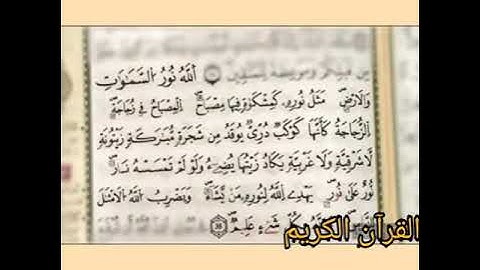 ٱللَّهُ نُورُ ٱلسَّمَٰوَٰتِ
وَٱلْأَرْضِۚ مَثَلُ نُورِهِۦ كَمِشْكَوٰةٍ فِيهَا مِصْبَاحٌۖ ٱلْمِصْبَاحُ فِى زُجَاجَةٍۖ
ٱلزُّجَاجَةُ كَأَنَّهَا كَوْكَبٌ دُرِّىٌّ يُوقَدُ مِن شَجَرَةٍ مُّبَٰرَكَةٍ زَيْتُونَةٍ
لَّا شَرْقِيَّةٍ وَلَا غَرْبِيَّةٍ يَكَادُ زَيْتُهَا يُضِىٓءُ وَلَوْ لَمْ تَمْسَسْهُ نَارٌۚ
نُّورٌ عَلَىٰ نُورٍۗ يَهْدِى ٱللَّهُ لِنُورِهِۦ مَن يَشَآءُۚ وَيَضْرِبُ ٱللَّهُ ٱلْأَمْثَٰلَ
شَىْءٍ عَلِيمٌ ۝٣٥
القرآن الكريم